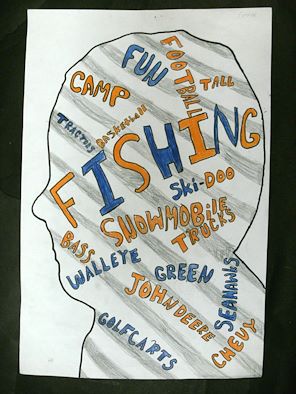 FOOTBALL
FUN
TALL
CAMP
TRACTORS
BASKETBALL
FISHING
SKi-DOO
SNOWMOBiLE
TRUCKS
BASS
WALLEYE
GREEN
SEAHAWKS
JOHN DEERE
CHEVY
GOLFCARTS